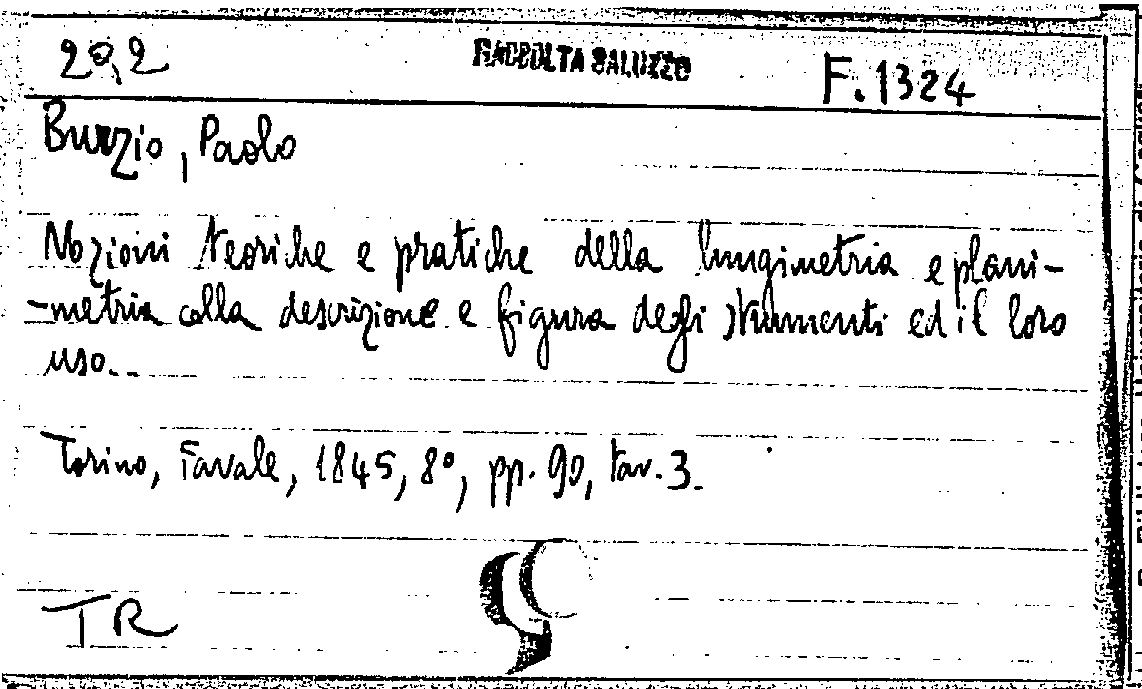 RACCOLTA SALUZZO
F.1324
Burzio, Paolo
Nozioni teoriche e pratiche della lungimetria e plani-
-metria colla descrizione e figura degli strumenti ed il loro
uso...
Torino, Favale, 1845, 8°, pp. 90, tav. 3.
TR